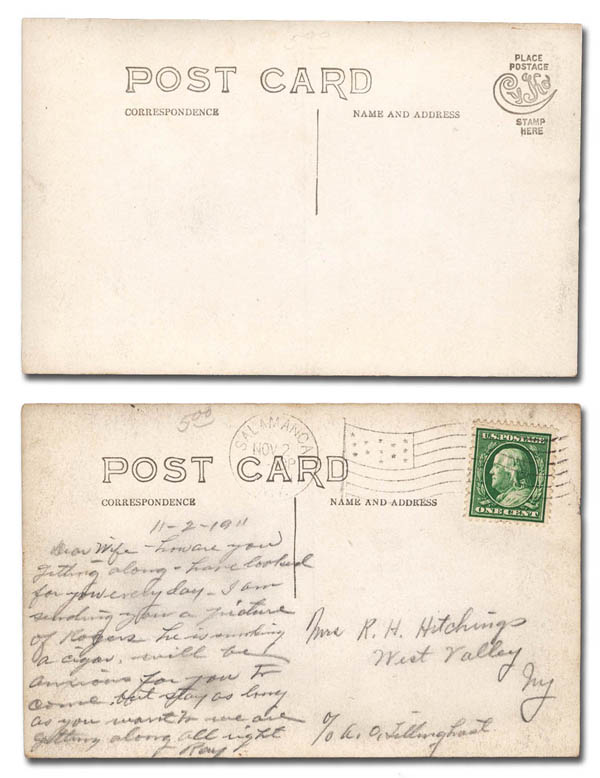 5.00
POST CARD
CORRESPONDENCE
NAME AND ADDRESS
PLACE
POSTAGE
CyKo
STAMP
HERE
5.00
SALAMANCA
NOV 2
POST CARD
CORRESPONDENCE
NAME AND ADDRESS
U.S. POSTAGE
ONE CENT
11-2-1911
Dear Wife - how are you
getting along - have looked
for you every day - I am
sending you a picture
of Rogers he is smoking
a cigar. will be
anxious for you to
come. but stay as long
as you want to we are
getting along all right
Ray.
Mrs R. H. Hitchings
West Valley
Ny
c/o A. O. Tillinghast